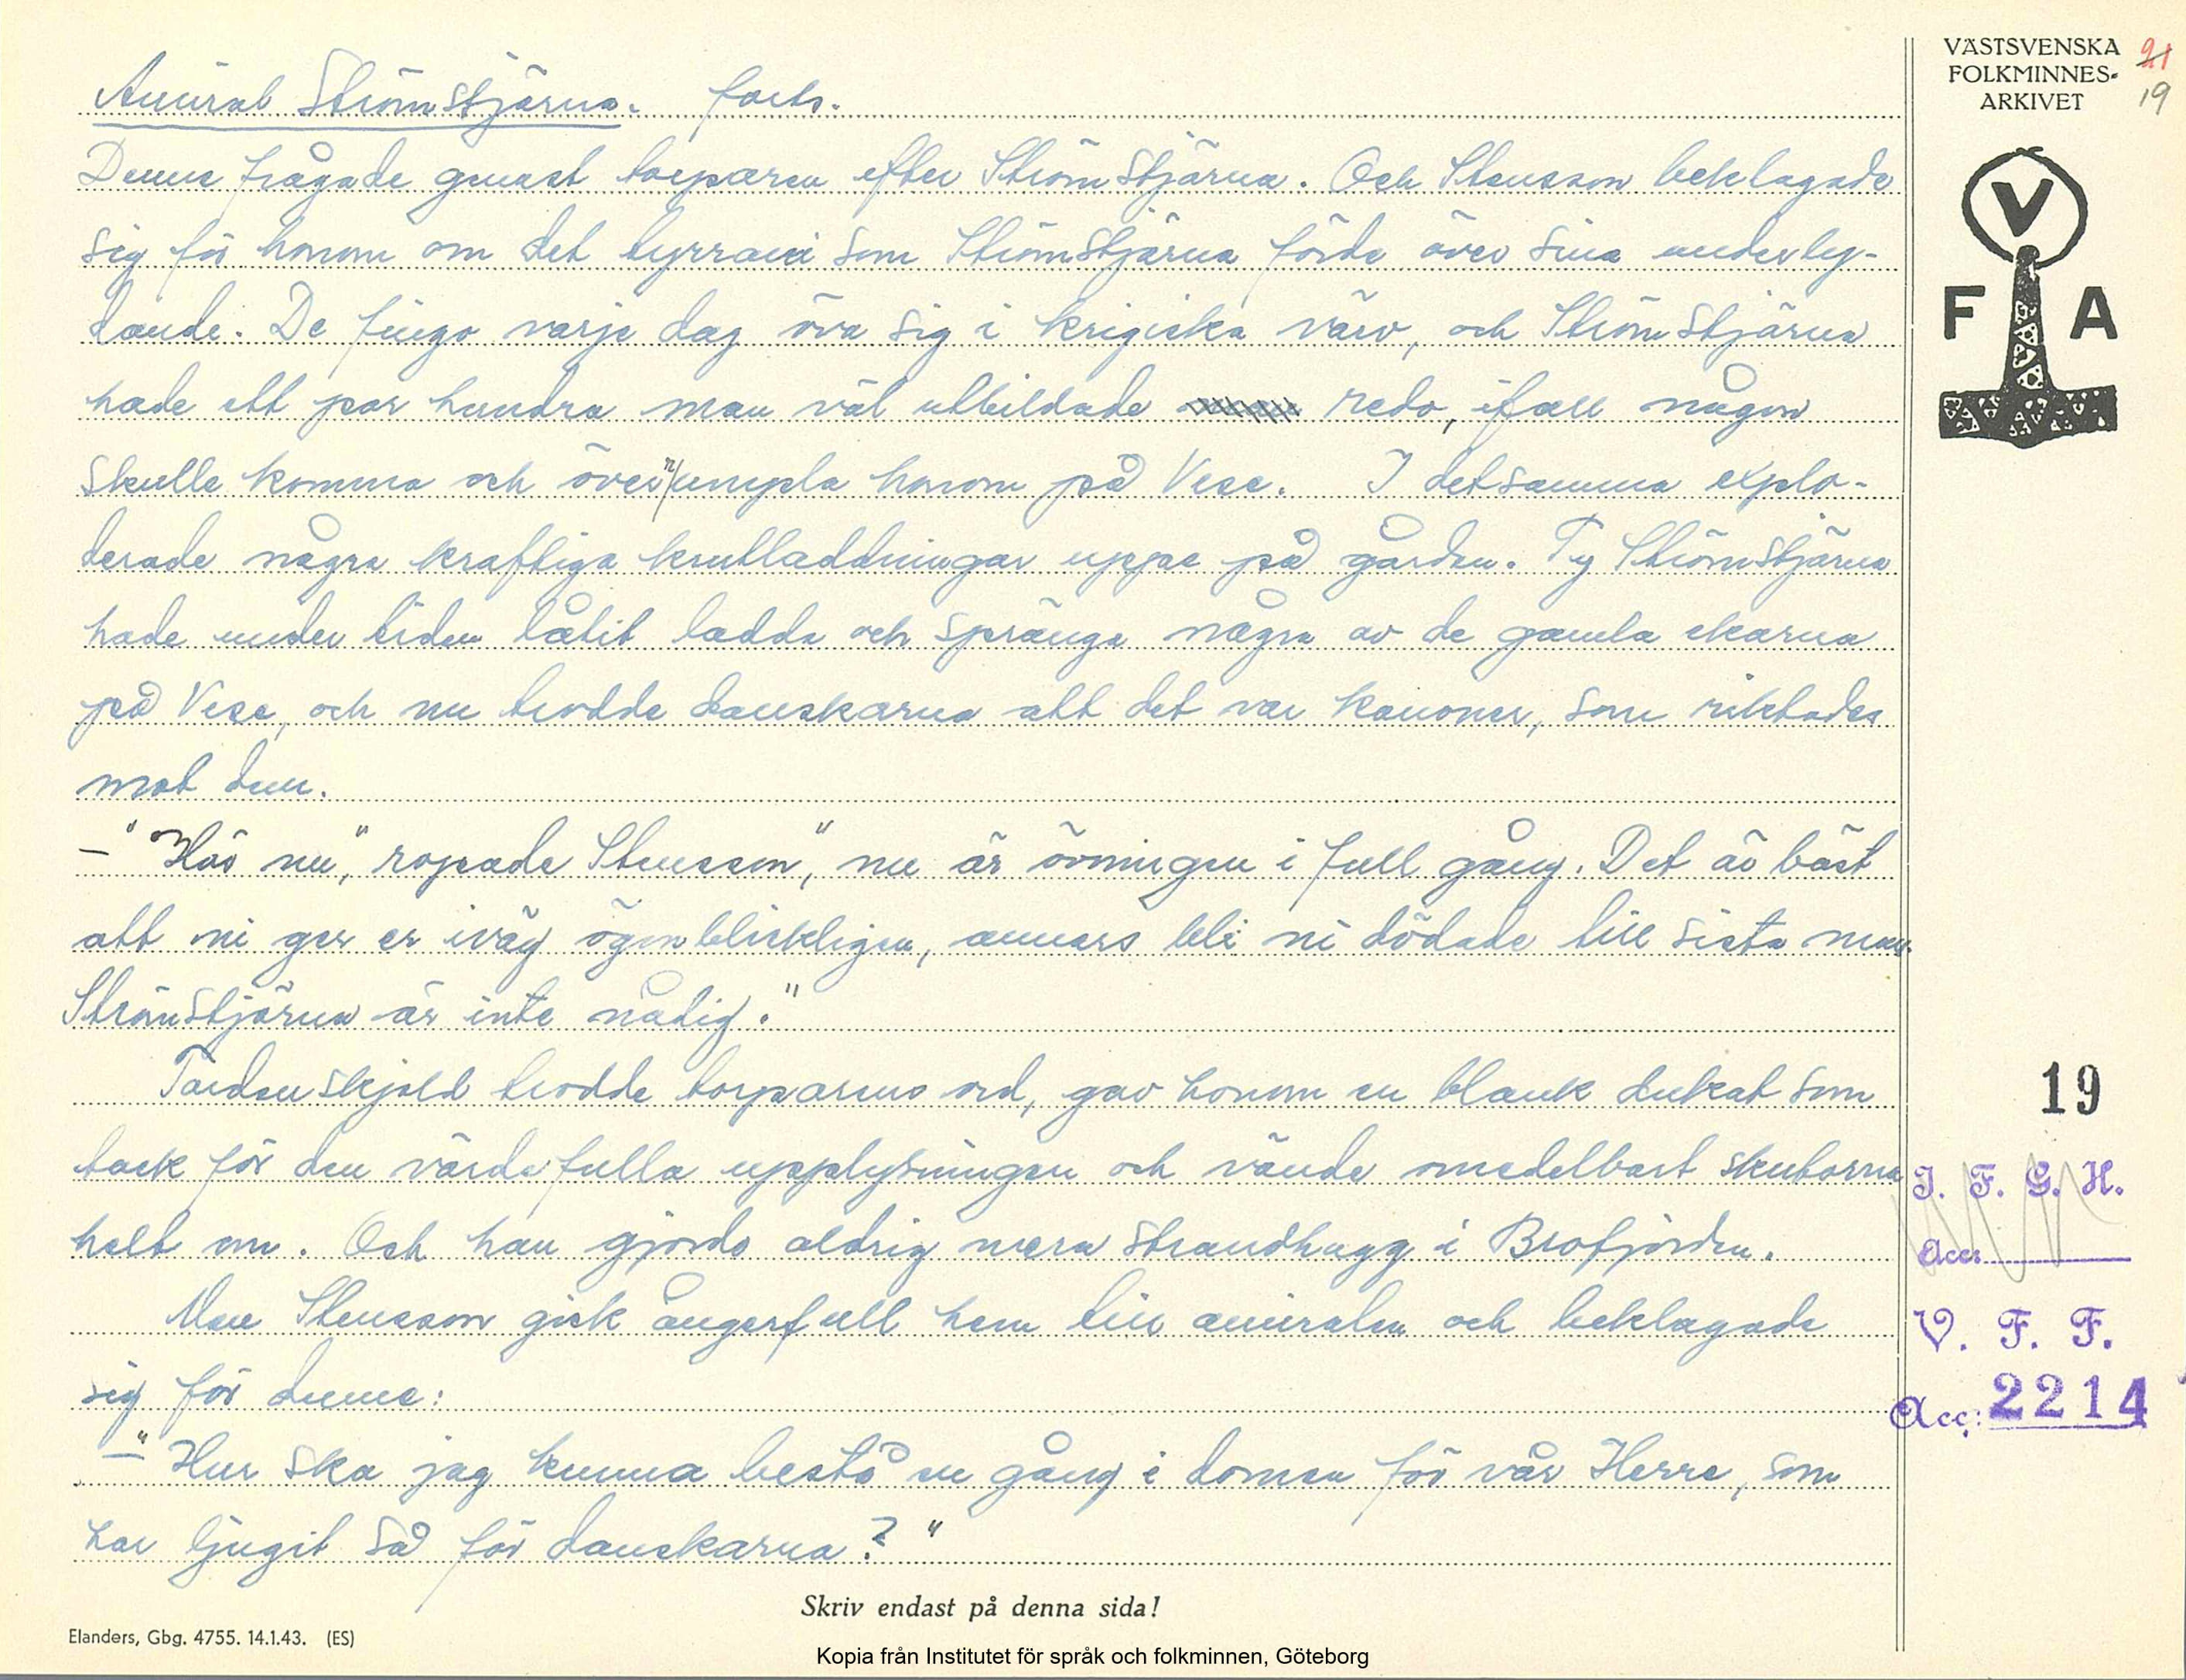 Amiral Strömstjärna. forts.
Denne frågade genast torparen efter Strömstjärna. Och Stensson beklagade
sig för honom om det tyrrani som Strömstjärna förde över sina underly-
dande. De fingo varje dag öva sig i krigiska värv, och Strömstjärna
hade ett par hundra man väl utbildade redo, ifall någon
skulle komma och överrumpla honom på Vese. I detsamma explo-
derade några kraftiga krutladdningar uppe på gården. Ty Strömstjärna
hade under tiden låtit ladda och spränga några av de gamla ekarna
på Vese, och nu trodde danskarna att det var kanoner, som riktades
mot dem.
–"Hör nu", ropade Stensson, "nu är övningen i full gång. Det är bäst
att ni ger er iväg ögonblickligen, annars bli ni dödade till sista man.
Strömstjärna är inte nådig."
Tordenskjold trodde torparens ord, gav honom en blank dukat som
tack för den värdefulla upplysningen och vände omedelbart skutorna
helt om. Och han gjorde aldrig mera strandhugg i Brofjorden.
Men Stensson gick ångerfull hem till amiralen och beklagade
sig för denne:
–"Hur ska jag kunna bestå en gång i domen för vår Herre, som
har ljugit så för danskarna?"
Skriv endast på denna sida!
Elanders, Gbg. 4755. 14.1.43. (ES)
Kopia från Institutet för språk och folkminnen, Göteborg
VÄSTSVENSKA
FOLKMINNES-
ARKIVET
21
19
V
F A
19
I. F. G. H.
Acc.
V. F. F.
Acc: 2214